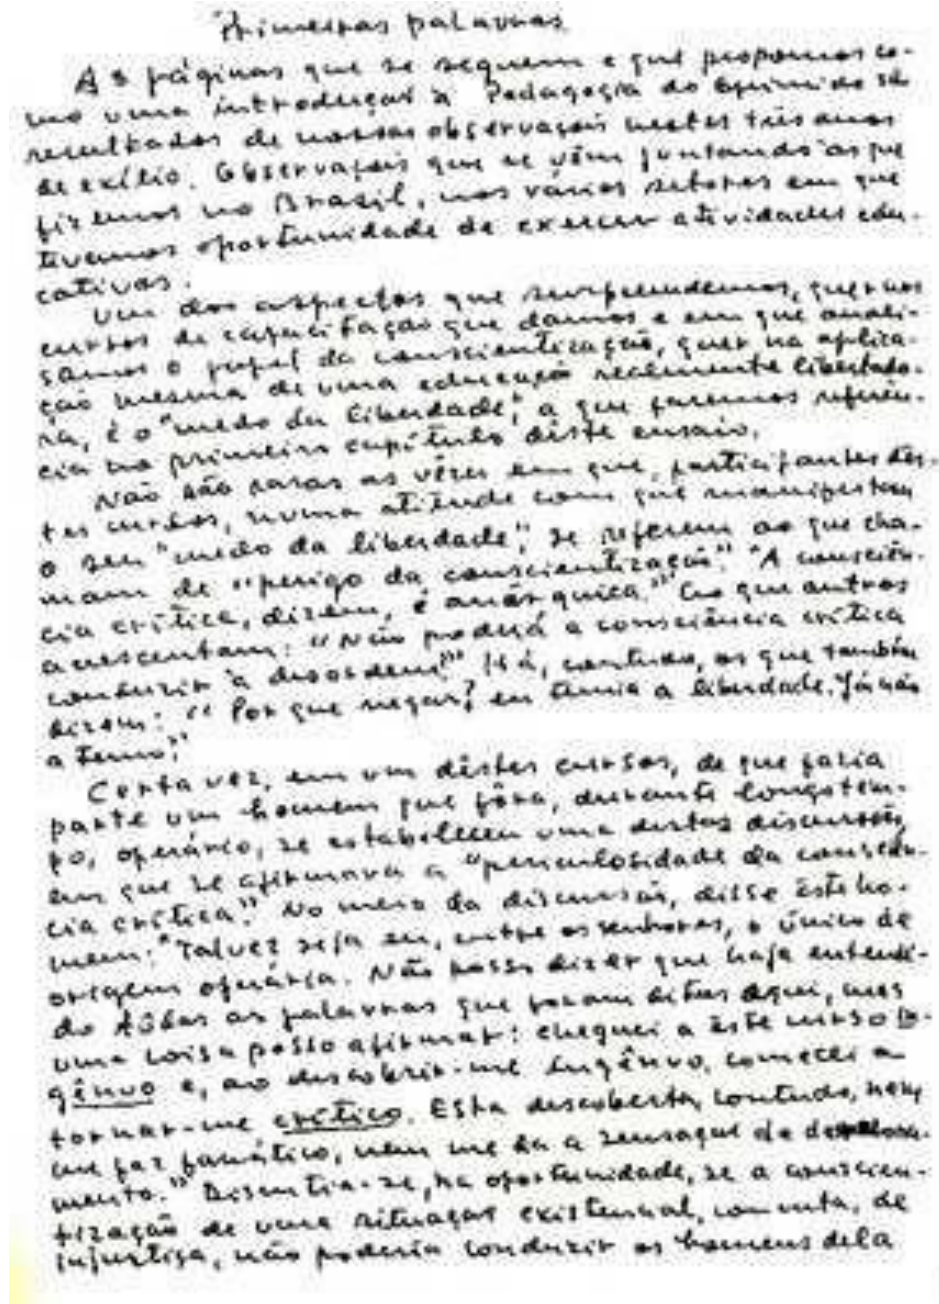 Primeiras palavras
As páginas que se seguem e que propomos co-
mo uma introdução à Pedagogia do Oprimido são
resultados de nossas observações nestes três anos
de exílio. Observações que se vêm juntando às que
fizemos no Brasil, nos vários setores em que
tivemos oportunidade de exercer atividades edu-
cativas.
Um dos aspectos que surpreendemos, quer nos
cursos de capacitação que damos e em que anali-
samos o papel da conscientização, quer na aplica-
ção mesma de uma educação realmente libertado-
ra, é o "medo da liberdade", a que faremos referên-
cia no primeiro capítulo dêste ensaio.
Não são raras as vêzes em que, participantes des-
tes cursos, numa atitude com que manifestam
o seu "medo da liberdade", se referem ao que cha-
mam de "perigo da conscientização". "A consciên-
cia crítica, dizem, é anárquica." Ao que outros
acrescentam: "Não poderá a consciência crítica
conduzir à desordem?" Há, contudo, os que também
dizem: "Por que negar? eu temia a liberdade. Já não
a temo."
Certa vez, em um dêstes cursos, de que fazia
parte um homem que fôra, durante longo tem-
po, operário, se estabeleceu uma destas discussões
em que se afirmava a "periculosidade da consciên-
cia crítica". No meio da discussão, disse êste ho-
mem: "Talvez seja eu, entre os senhores, o único de
origem operária. Não posso dizer que haja entendi-
do tôdas as palavras que foram ditas aqui, mas
uma coisa posso afirmar: cheguei a êste curso in-
gênuo e, ao descobrir-me ingênuo, comecei a
tornar-me crítico. Esta descoberta, contudo, nem
me faz fanático, nem me dá a sensação de desmorona-
mento." Discutia-se, na oportunidade, se a conscien-
tização de uma situação existencial, concreta, de
injustiça, não poderia conduzir os homens dela